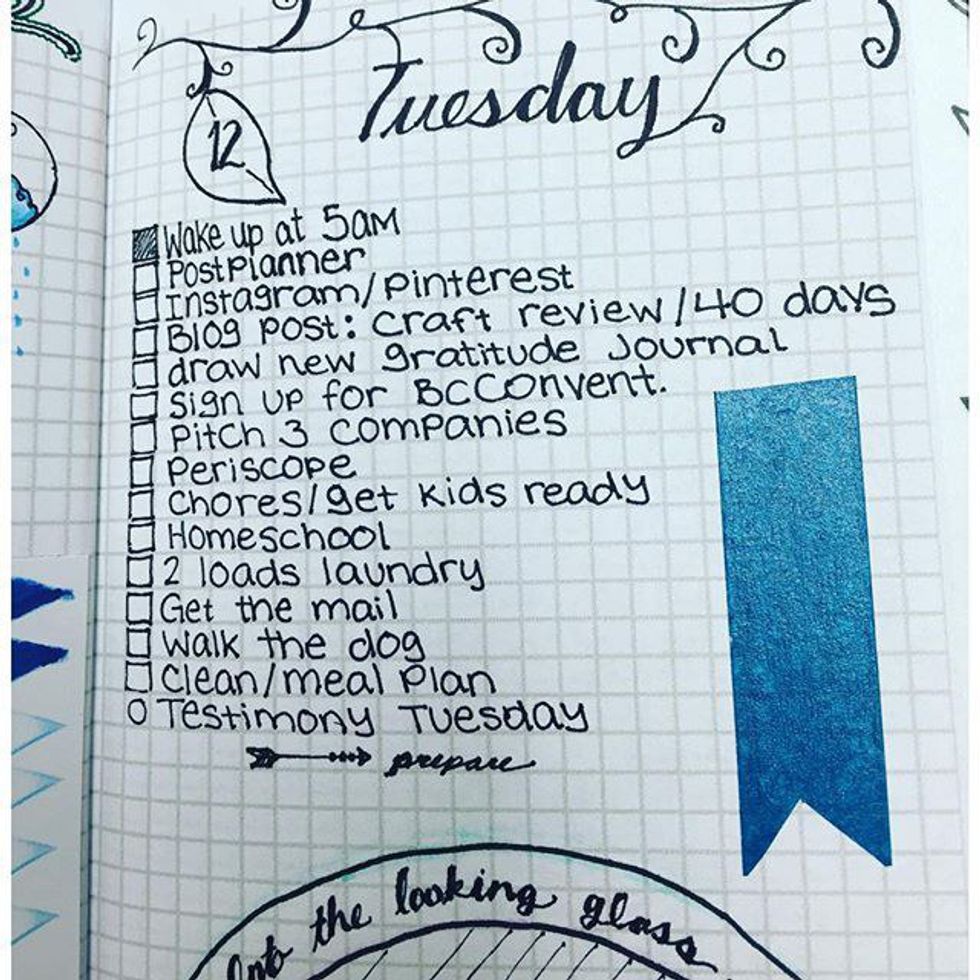 Tuesday
12
Wake up at 5am
Postplanner
Instagram/pinterest
Blog post: craft review/40 days
draw new gratitude Journal
Sign up for BCConvent.
Pitch 3 companies
Periscope
Chores/get kids ready
Homeschool
2 loads laundry
Get the mail
Walk the dog
Clean/meal Plan
Testimony Tuesday
prepare
Into the looking glass